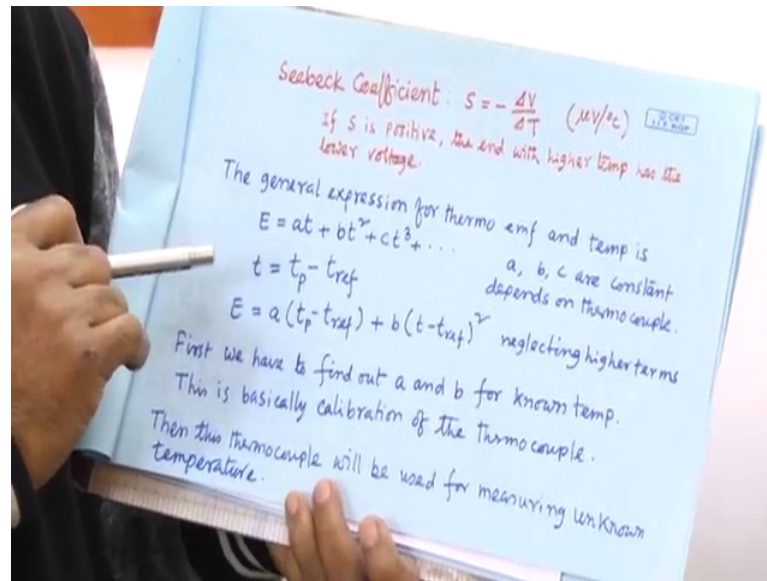 Seebeck Coefficient: S = - ΔV/ΔT (μV/°C)
If S is positive, the end with higher temp has the
lower voltage.
The general expression for thermo emf and temp is
E = at + bt² + ct³ + ....
a, b, c are constant
t = tp - tref
depends on thermocouple.
E = a (tp - tref) + b (t - tref)² neglecting higher terms
First we have to find out a and b for known temp.
This is basically calibration of the thermocouple.
Then this thermocouple will be used for measuring unknown
temperature.